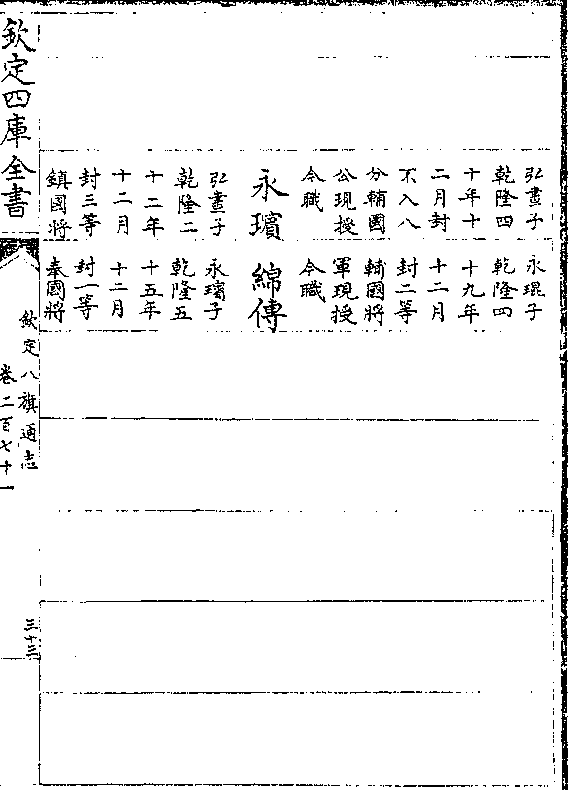 弘晝子
乾隆四
十年十
二月封
不入八
分輔國
公現授
今職
永璸
弘晝子
乾隆二
十二年
十二月
封三等
鎮國將
永琨子
乾隆四
十九年
十二月
封二等
輔國將
軍現授
今職
綿傳
永璸子
乾隆五
十五年
十二月
封一等
奉國將
欽定四庫全書
欽定八旗通志
卷二百七十一
三十三